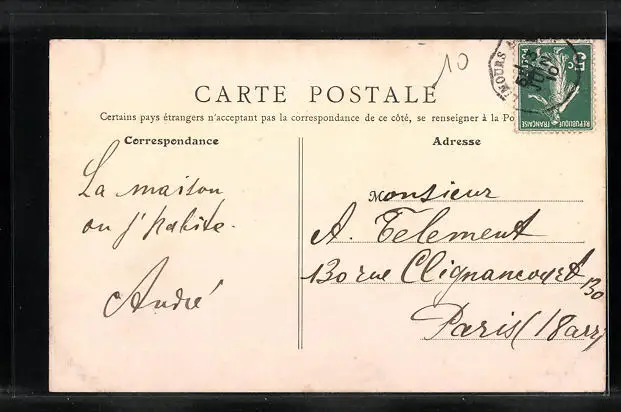 10
CARTE POSTALE
Certains pays étrangers n'acceptant pas la correspondance de ce côté, se renseigner à la
Correspondance
Adresse
La maison
ou j'habite.
André
Monsieur
A. Telement
130 rue Clignancourt 130
Paris (18arr)
5c
REPUBLIQUE FRANÇAISE